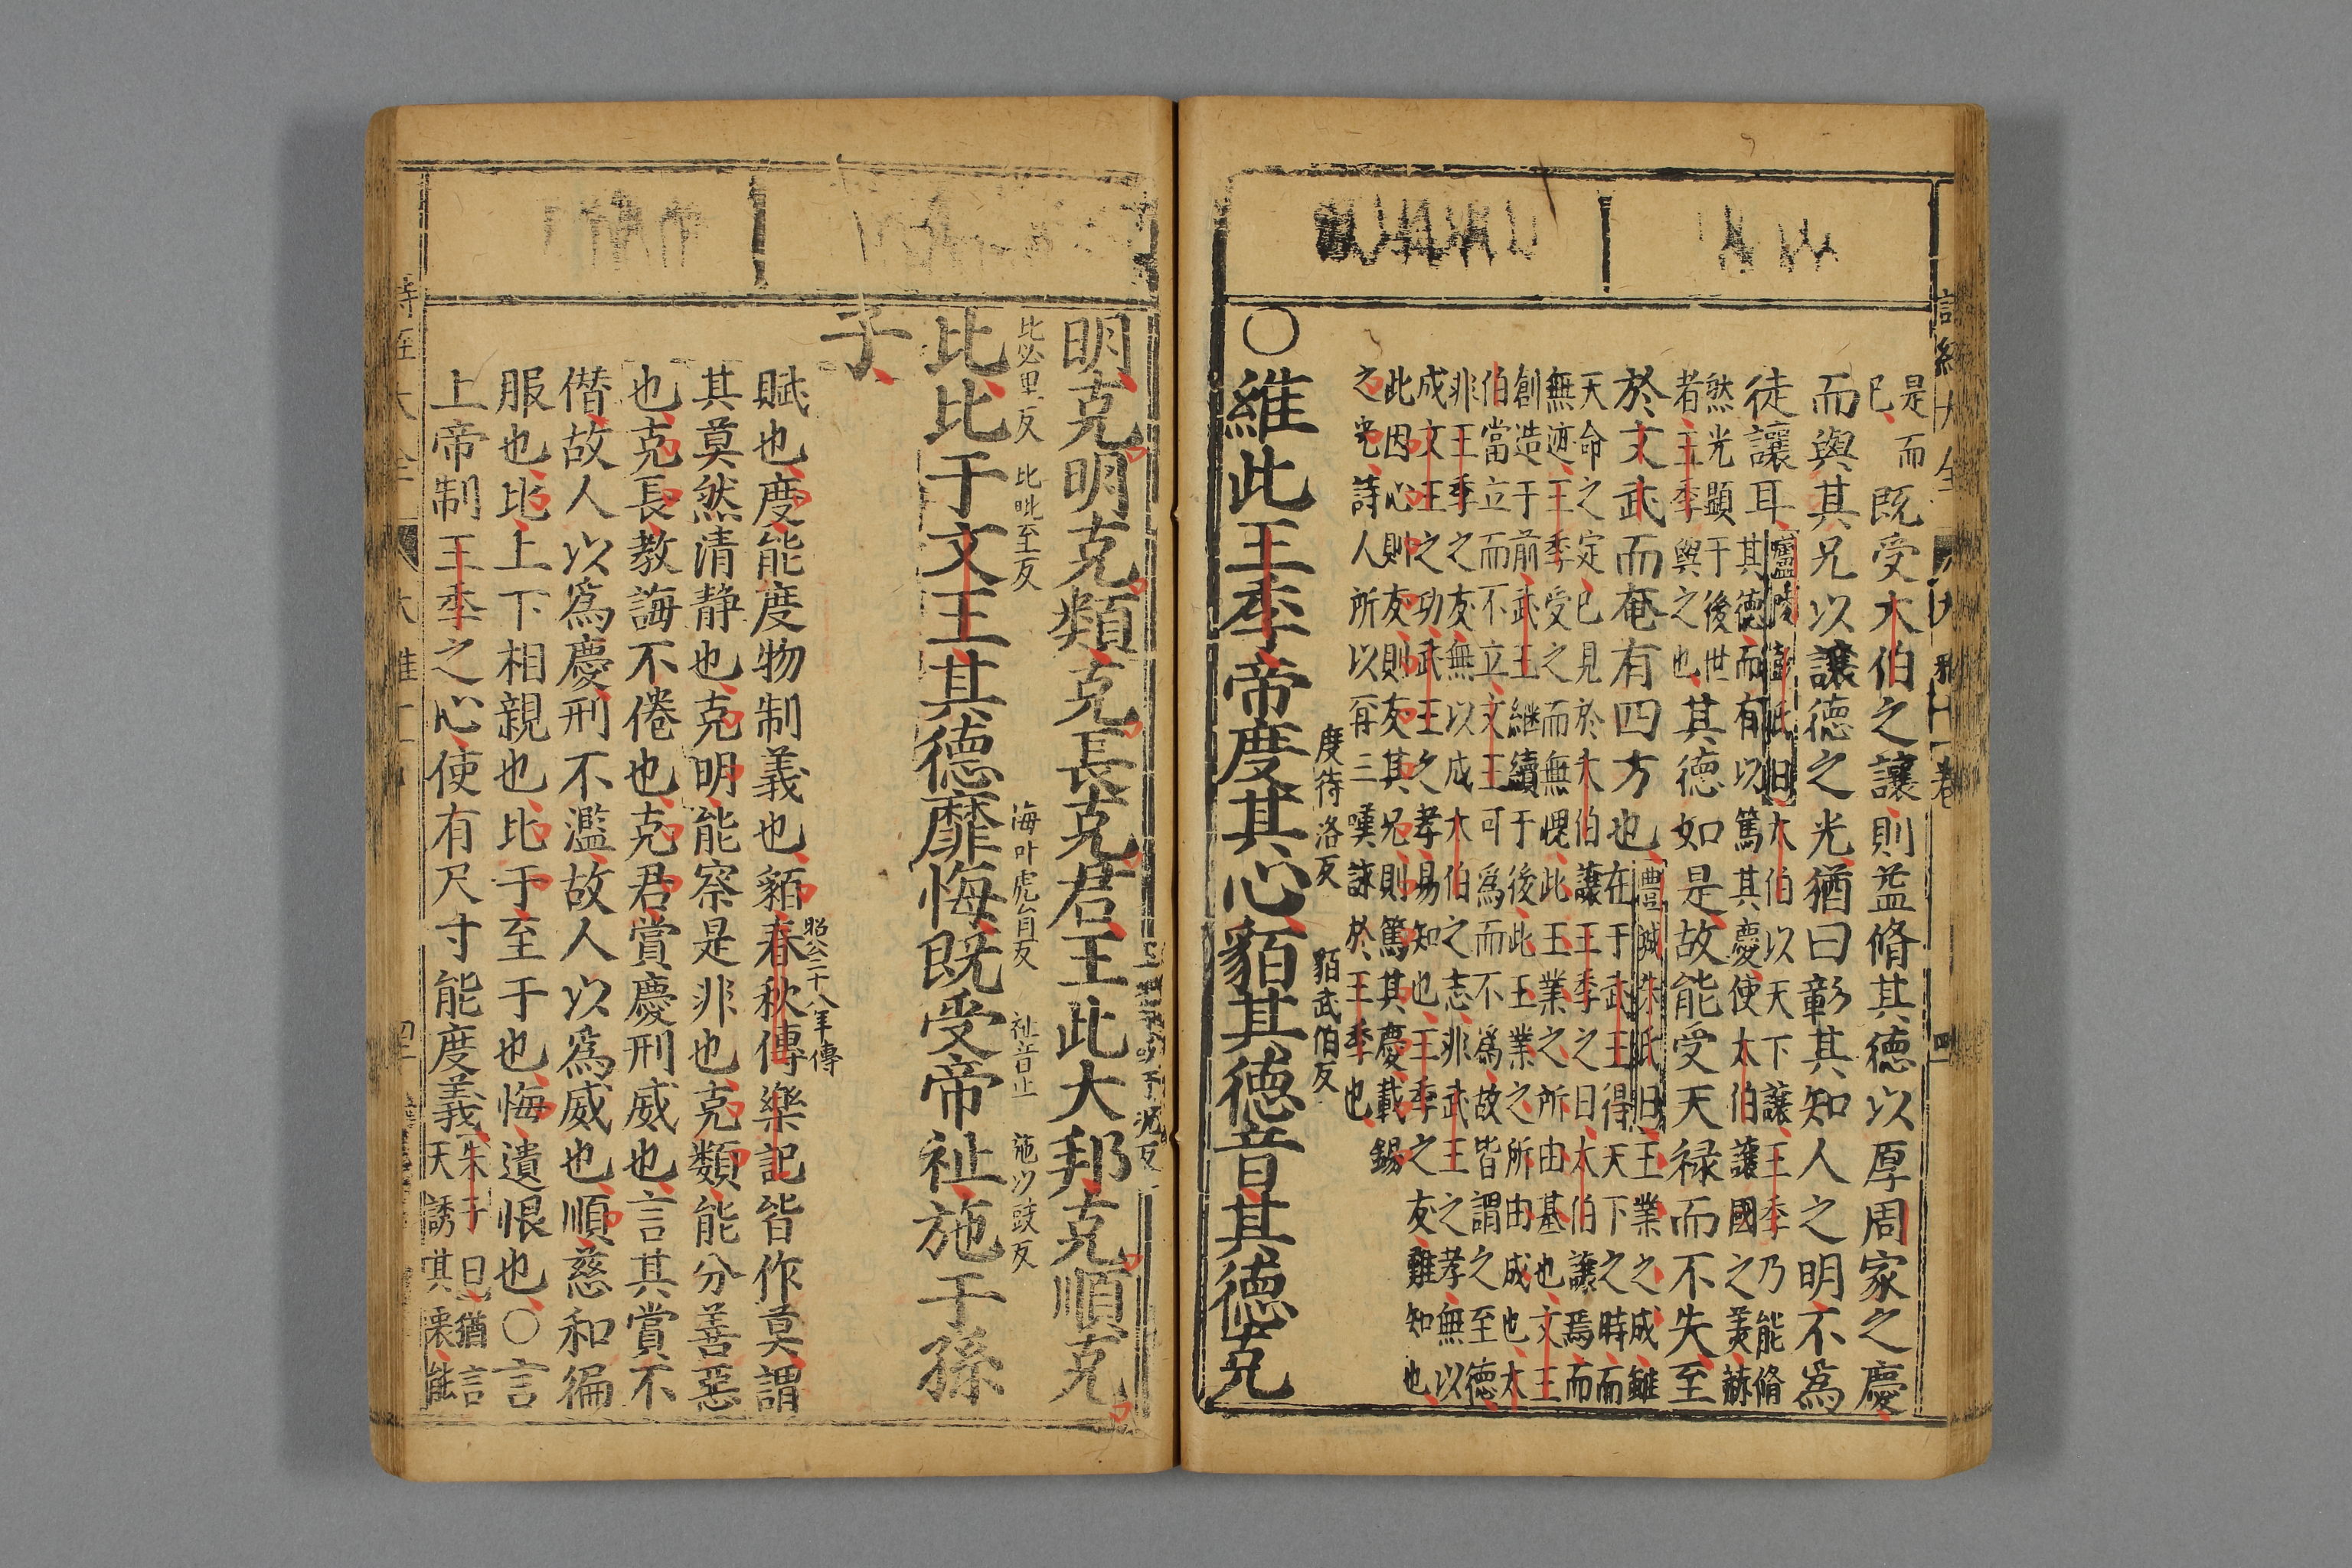 是而
已
既受大伯之讓則益脩其德以厚周家之慶
而與其兄以讓德之光猶曰彰其知人之明不為
徒讓耳
廬陵彭氏曰大伯以天下讓王季乃能脩
其德而有以篤其慶使太伯讓國之美赫
然光顯于後世
者王季與之也
其德如是故能受天祿而不失至
於文武而奄有四方也
豊城朱氏曰王業之成雖
在于武王得天下之時而
天命之定已見於大伯讓王季之日太伯讓焉而
無迹王季受之而無愧此王業之所由基也文王
創造于前武王繼續于後此王業之所由成也太
伯當立而不立文王可為而不為故皆謂之至德
非王季之友無以成大伯之志非武王之孝無以
成文王之功武王之孝易知也王季之友難知也
此因心則友則友其兄則篤其慶載錫
之光詩人所以再三嘆詠於王季也
○維此王季帝度其心貊其德音其德克
度待洛反
貊武伯反
明克明克類克長克君王此大邦克順克
比必里反
比毗至反
悔叶虎自反
祉音止
施以豉反
比比于文王其德靡悔既受帝祉施于孫
子
賦也度能度物制義也貊春秋傳樂記皆作莫謂
昭公二十八年傳
其莫然清靜也克明能察是非也克類能分善惡
也克長教誨不倦也克君賞慶刑威也言其賞不
僭故人以為慶刑不濫故人以為威也順慈和徧
服也比上下相親也比于至于也悔遺恨也○言
上帝制王季之心使有尺寸能度義
朱子曰猶言
天誘其衷能